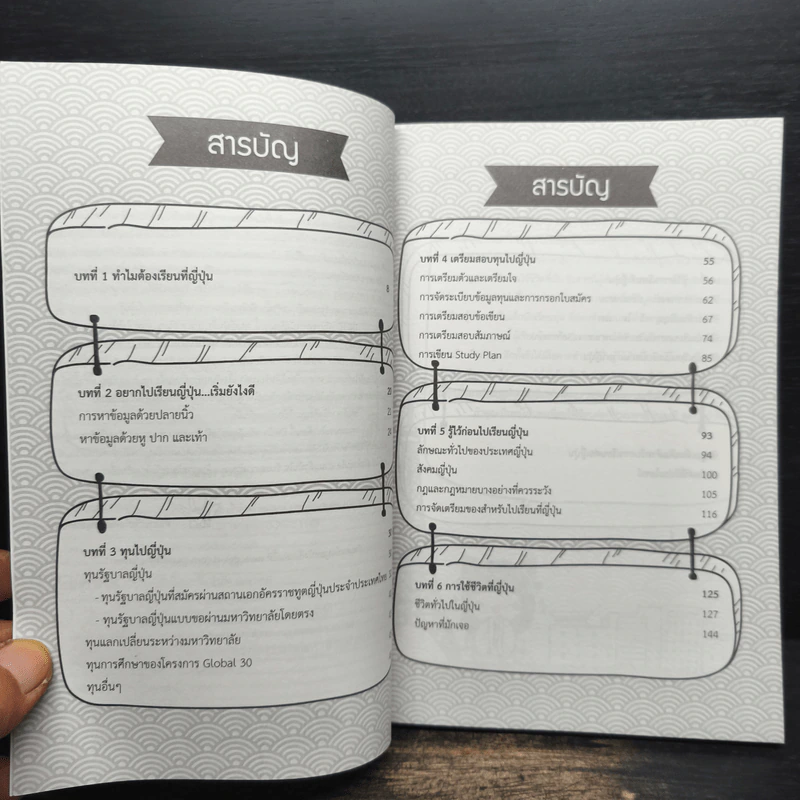 สารบัญ
บทที่ 1 ทำไมต้องเรียนที่ญี่ปุ่น
บทที่ 2 อยากไปเรียนญี่ปุ่น...เริ่มยังไงดี
การหาข้อมูลด้วยปลายนิ้ว
หาข้อมูลด้วยหู ปาก และเท้า
บทที่ 3 ทุนไปญี่ปุ่น
ทุนรัฐบาลญี่ปุ่น
- ทุนรัฐบาลญี่ปุ่นที่สมัครผ่านสถานเอกอัครราชทูตญี่ปุ่นประจำประเทศไทย
- ทุนรัฐบาลญี่ปุ่นแบบขอผ่านมหาวิทยาลัยโดยตรง
ทุนแลกเปลี่ยนระหว่างมหาวิทยาลัย
ทุนการศึกษาของโครงการ Global 30
ทุนอื่นๆ
สารบัญ
บทที่ 4 เตรียมสอบทุนไปญี่ปุ่น 55
การเตรียมตัวและเตรียมใจ 56
การจัดระเบียบข้อมูลทุนและการกรอกใบสมัคร 62
การเตรียมสอบข้อเขียน 67
การเตรียมสอบสัมภาษณ์ 74
การเขียน Study Plan 85
บทที่ 5 รู้ไว้ก่อนไปเรียนญี่ปุ่น 93
ลักษณะทั่วไปของประเทศญี่ปุ่น 94
สังคมญี่ปุ่น 100
กฎและกฎหมายบางอย่างที่ควรระวัง 105
การจัดเตรียมของสำหรับไปเรียนที่ญี่ปุ่น 116
บทที่ 6 การใช้ชีวิตที่ญี่ปุ่น 125
ชีวิตทั่วไปในญี่ปุ่น 127
ปัญหาที่มักเจอ 144